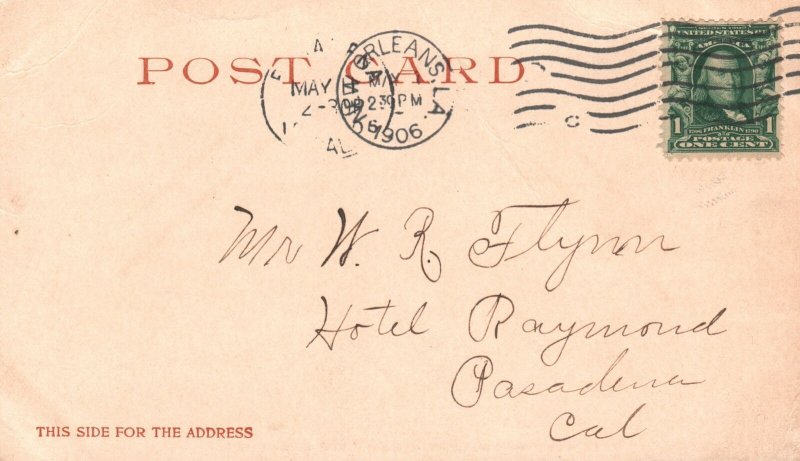 POST CARD
ORLEANS, LA.
MAY
2 30 PM
1906
MAY
SERIES 1902
UNITED STATES OF AMERICA
1 1706 FRANKLIN 1790 1
POSTAGE
ONE CENT
Mr W. R. Flynn
Hotel Raymond
Pasadena
Cal
THIS SIDE FOR THE ADDRESS